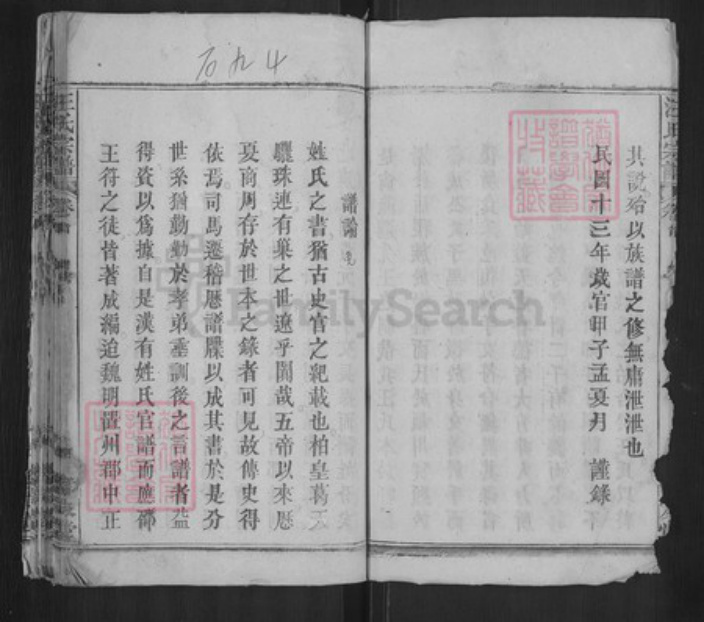 其說殆以族譜之修無庸泄泄也
民國十三年歲官甲子孟夏月　謹錄
譜論
姓氏之書猶古史官之紀載也柏皇葛天
驪珠連有巢之世遼乎闊哉五帝以來歷
夏商周存於世本之錄者可見故傳史得
依焉司馬遷稽歷譜牒以成其書於是分
世系猶勤勤於孝弟垂訓後之言譜者益
得資以爲據自是漢有姓氏官譜而應邵
王符之徒皆著成編迨魏明置州郡中正
汪氏宗譜
汪氏宗譜
石九4
FamilySearch